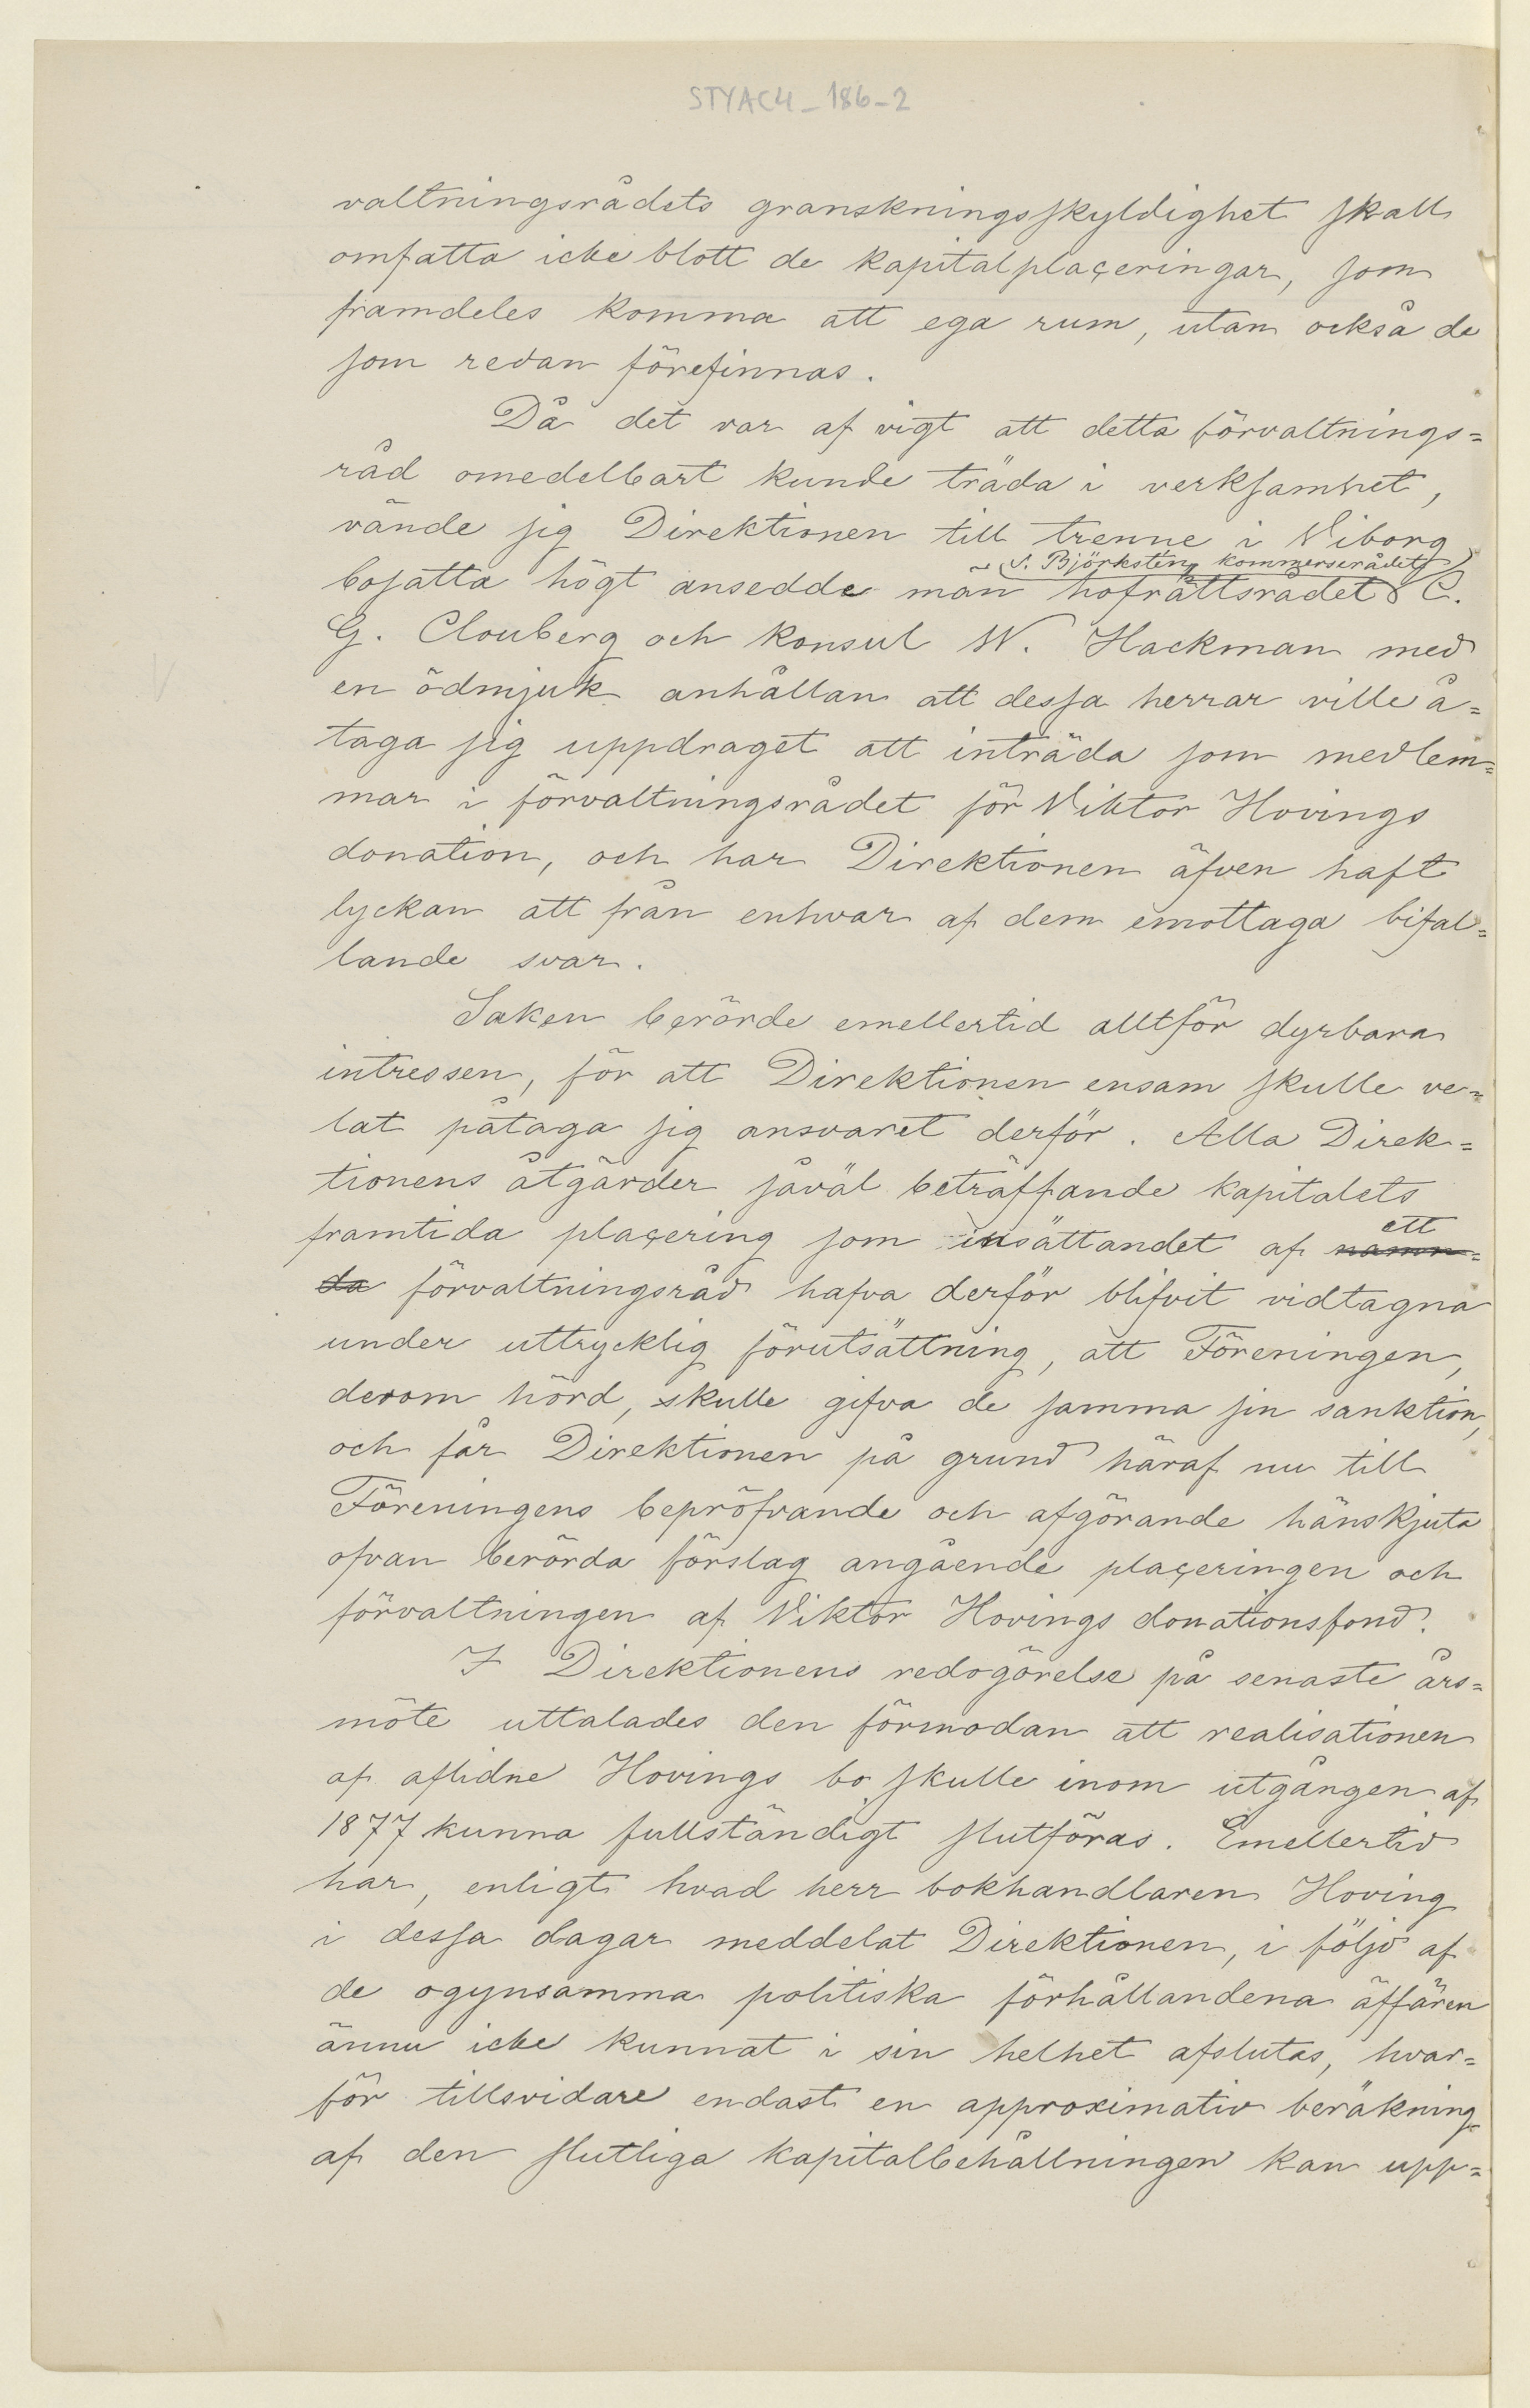 STYAC4_186-2
valtningsrådets granskningsskyldighet skall
omfatta icke blott de kapitalplaçeringar, som
framdeles komma att ega rum, utan också de
som redan förefinnas.
Då det var af vigt att detta förvaltnings=
råd omedelbart kunde träda i verksamhet,
vände sig Direktionen till trenne i Viborg
S. Björksten, kommerserådet
bosatta högt ansedde män hofrättsrådet C.
G. Clouberg och konsul W. Hackman med
en ödmjuk anhållan att dessa herrar ville å=
taga sig uppdraget att inträda som medlem=
mar i förvaltningsrådet för Viktor Hovings
donation, och har Direktionen äfven haft
lyckan att från enhvar af dem emottaga bifal=
lande svar.
Saken berörde emellertid alltför dyrbara
intressen, för att Direktionen ensam skulle ve=
lat påtaga sig ansvaret derför. Alla Direk=
tionens åtgärder såväl beträffande kapitalets
ett
framtida plaçering som insättandet af nämn=
da förvaltningsråd hafva derför blifvit vidtagna
under uttrycklig förutsättning, att Föreningen,
derom hörd, skulle gifva de samma sin sanktion,
och får Direktionen på grund häraf nu till
Föreningens bepröfvande och afgörande hänskjuta
ofvan berörda förslag angående plaçeringen och
förvaltningen af Viktor Hovings donationsfond.
I Direktionens redogörelse på senaste års=
möte uttalades den förmodan att realisationen
af aflidne Hovings bo skulle inom utgången af
1877 kunna fullständigt slutföras. Emellertid
har, enligt hvad herr bokhandlaren Hoving
i dessa dagar meddelat Direktionen, i följd af
de ogynsamma politiska förhållandena affären
ännu icke kunnat i sin helhet afslutas, hvar=
för tillsvidare endast en approximativ beräkning
af den slutliga kapitalbehållningen kan upp=